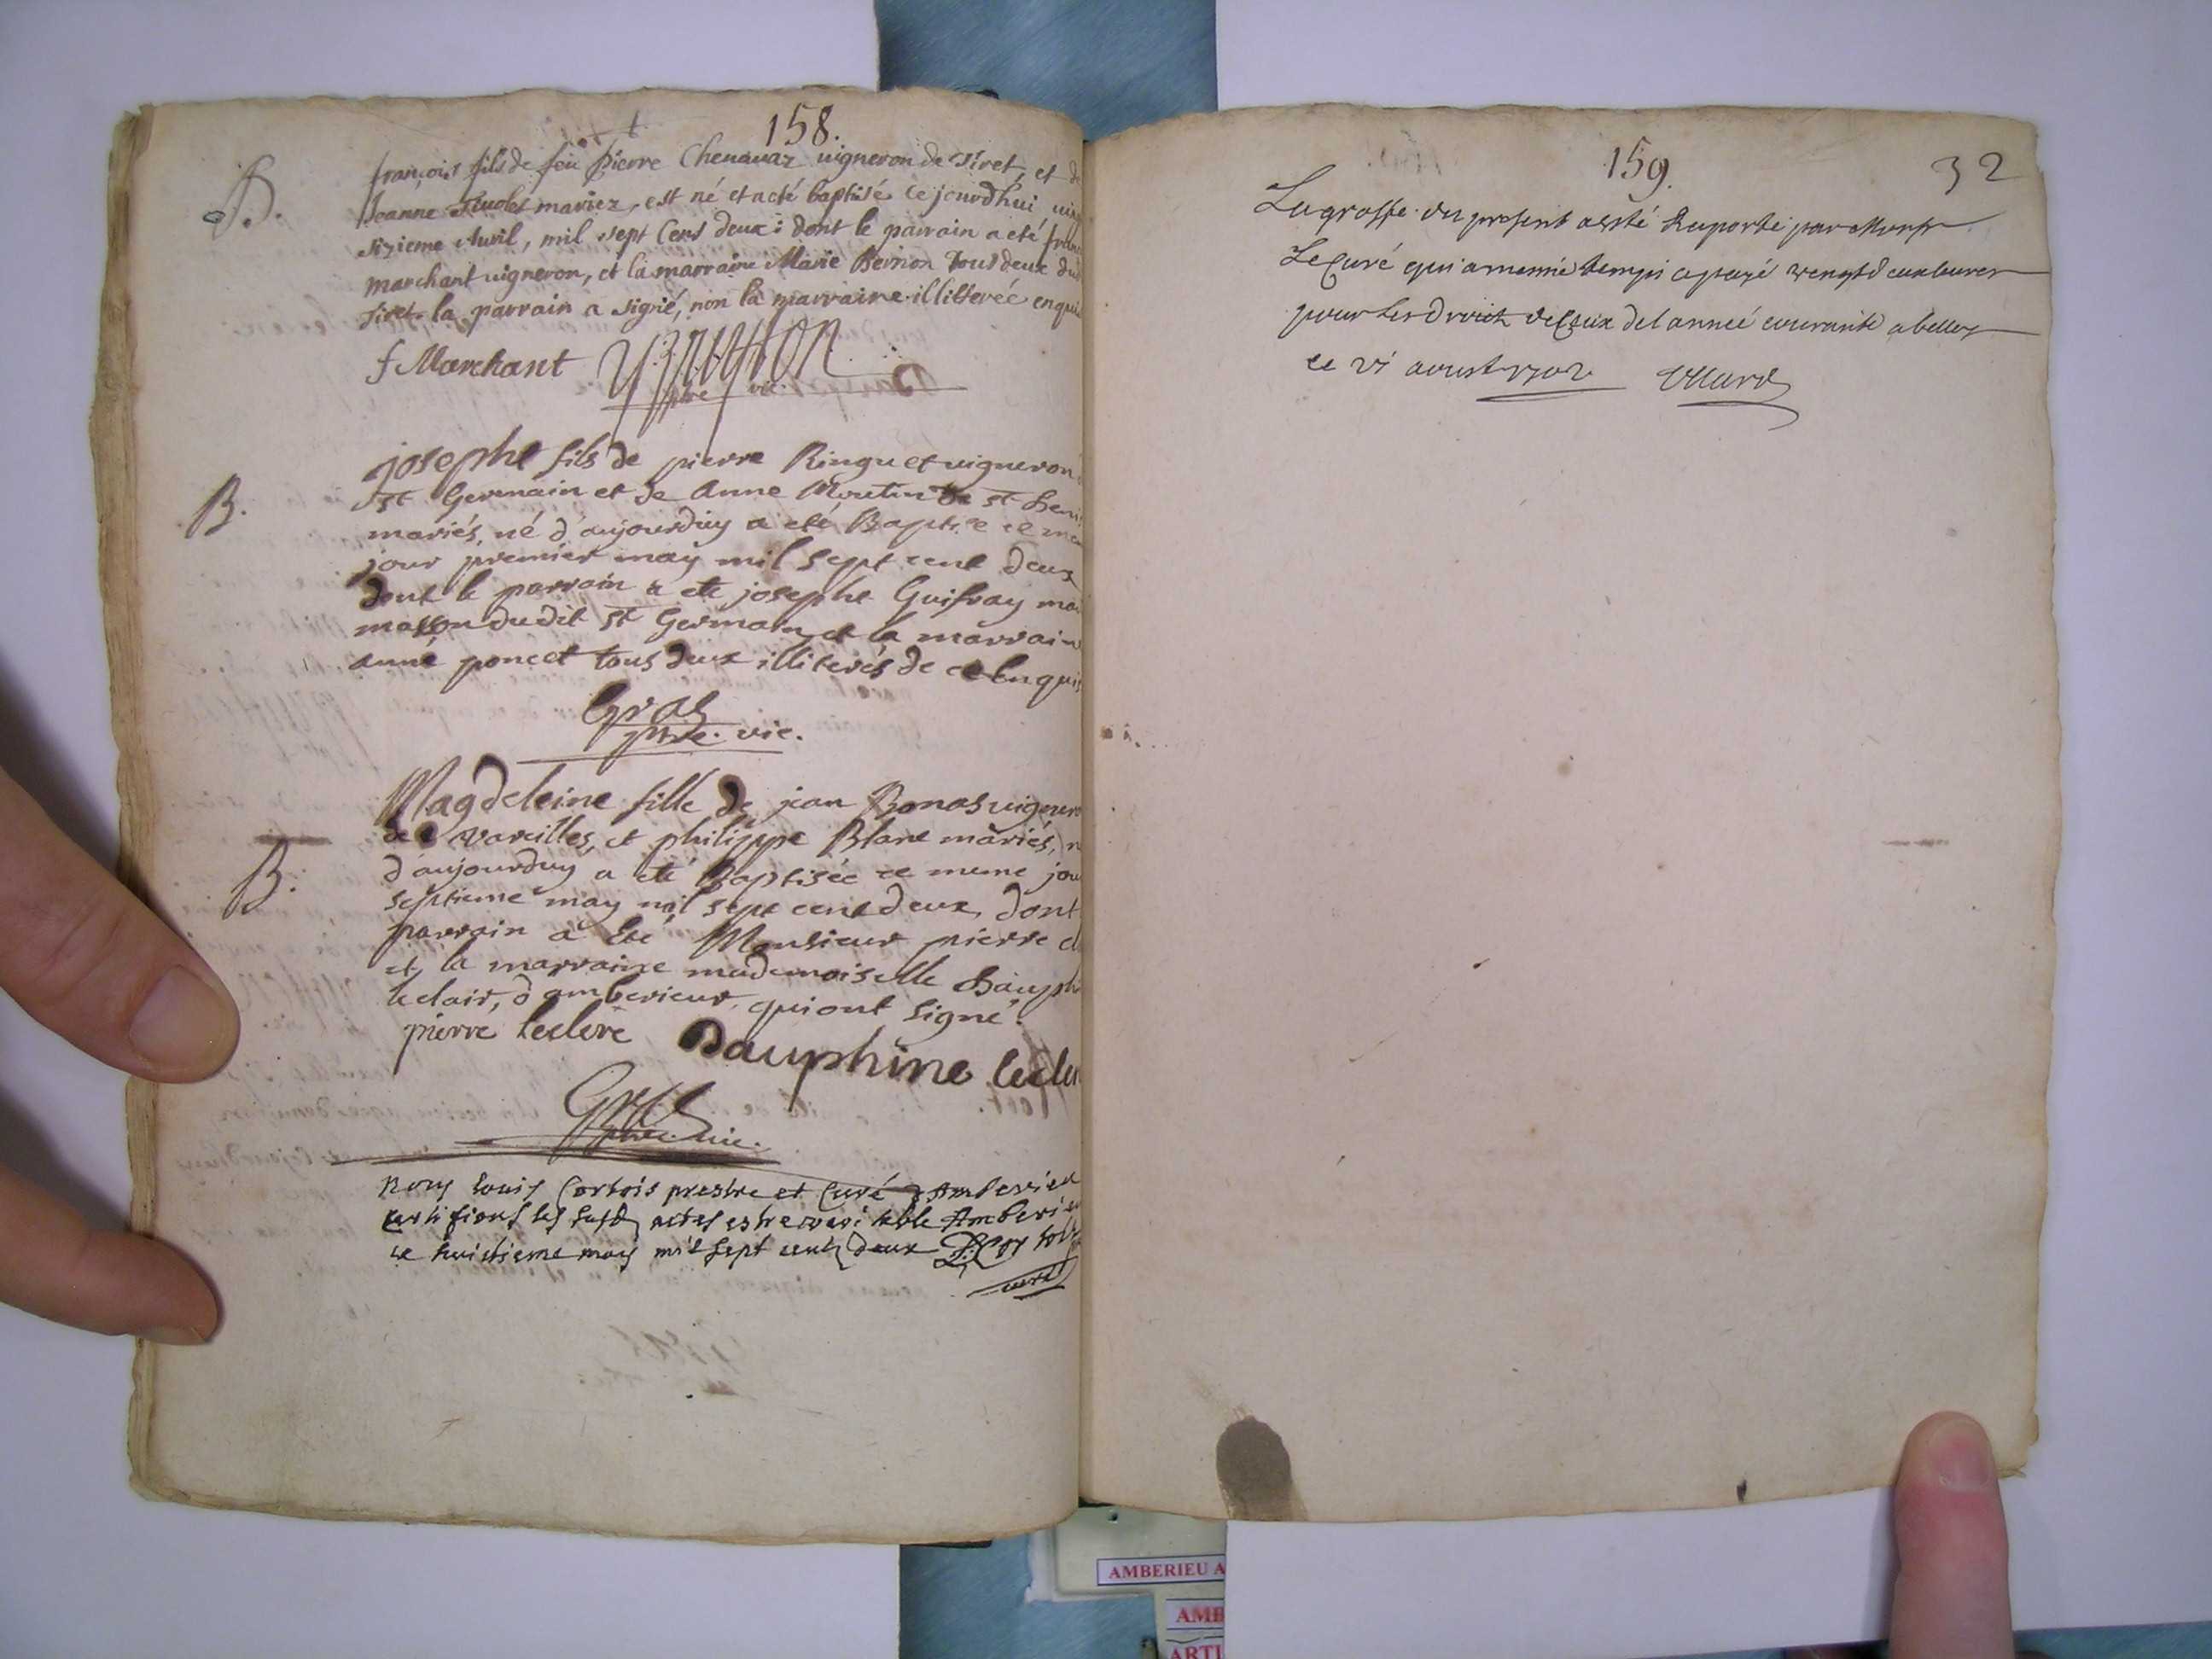 158.
B.
françois fils de feu pierre Chenauaz uigneron de Tiret, et de
Jeanne mariez, est né et a eté baptisé ce jourdhui
sizieme Auril, mil sept Cens deux : dont le parrain a eté
marchant uigneron, et la marraine Marie Bernon Tous deux
Tiret la parrain a signé, non la marraine illitterée
f Marchant
pbre vic.
B.
josephe fils de pierre Ringuet uigneron
St Germain et de Anne Moutin de St
mariés, né d'aujourduy a eté Baptise ce
jour premier may mil sept cent deux
dont le parrain a ete josephe Guifray
masson dudit St Germain et la marrain
anne poncet tous deux illiterés de ce enquis
Gras
pbre. vic.
B.
Magdeleine fille de jean Bonas uigner
de Vareilles, et philippe Blanc mariés,
d'aujourduy a eté Baptisée ce meme jou
septieme may mil sept cent deux, dont
parrain a eté Monsieur pierre
et la marraine mademoiselle Dauphi
leclair, d'amberieux qui ont signé.
pierre leclerc Dauphine lecler
Gras
pbre. vic.
Nous Louis Cortois prestre et Curé d'Amberieu
certifions les susd actes estre veritable Amberieu
ce huictieme may mil sept centz deux L. Cortois
curé
159.
32
La grosse du present a esté Raporté par Monsr
Le Curé qui a mesme temps a payé vengtdeux liures
pour les droictz de ceux de l'année courante a belley
ce vi aoust 1702